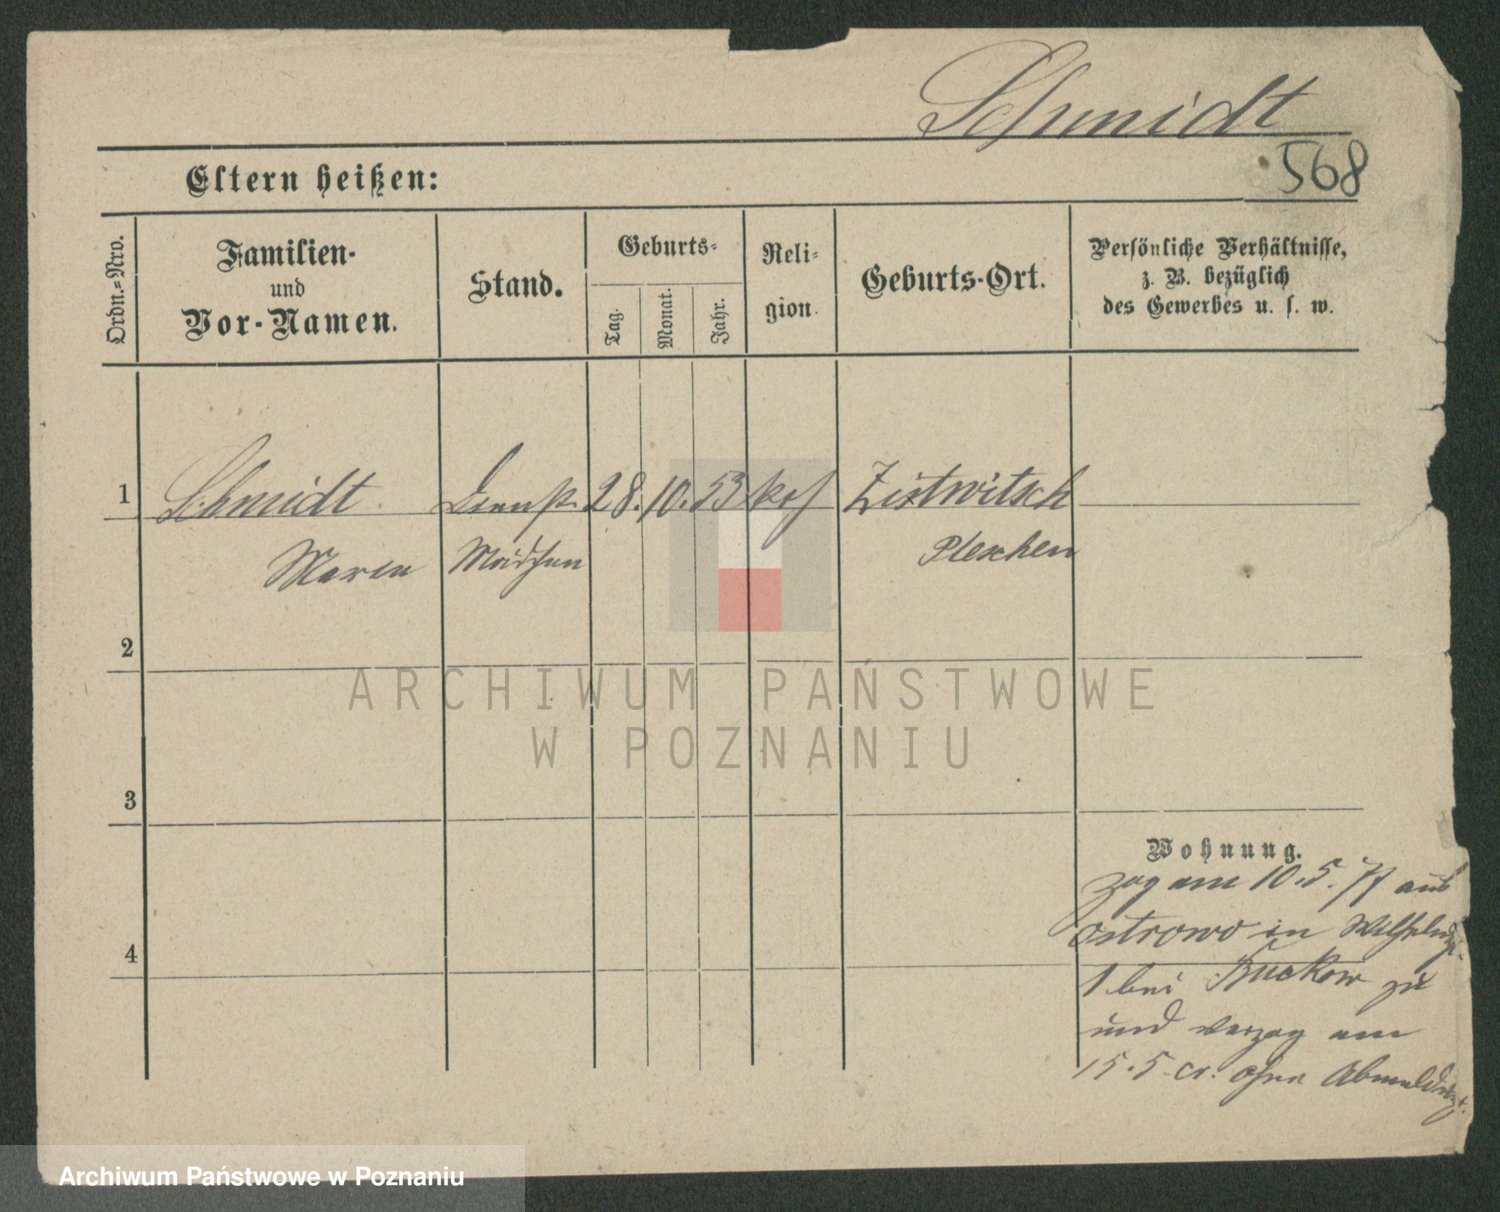 Schmidt
Eltern heißen:
568
Ordn.-Nro.
Familien-
und
Vor-Namen.
Stand.
Geburts-
Tag.
Monat.
Jahr.
Reli-
gion.
Geburts-Ort.
Persönliche Verhältnisse,
z. B. bezüglich
des Gewerbes u. s. w.
1
Schmidt Dienst 28. 10. 53 kath Zistwitsch
Mädchen Pleschen
2
ARCHIWUM PAŃSTWOWE
W POZNANIU
3
Wohnung.
zog am 10.5.77 aus
Ostrowo in Wilhelmspl.
4
1 bei Buckow zu
und verzog am
15.5. cr. ohne Abmeldung.
Archiwum Państwowe w Poznaniu